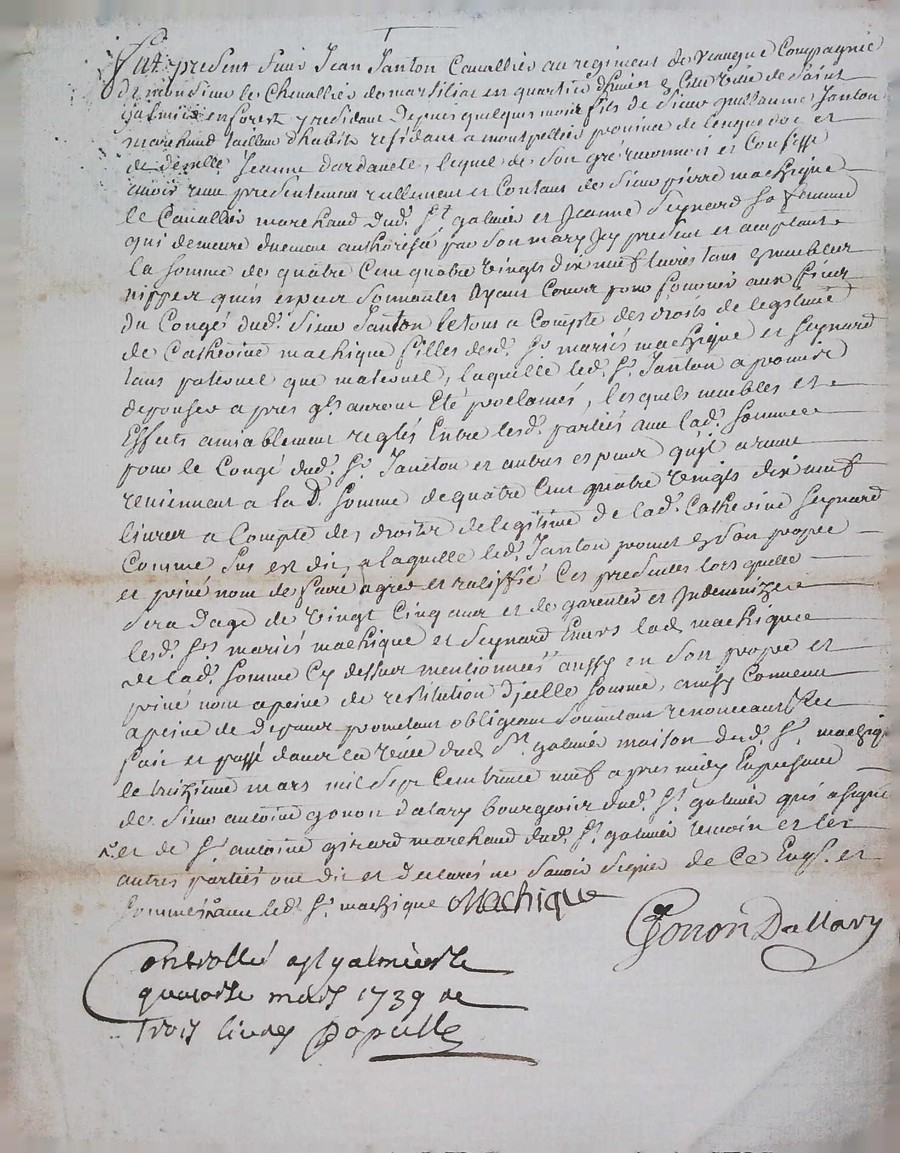 Fut present Sieur Jean Janton Cavallier au regiment de Compagnie
de monsieur le Chevallier de marsiliac en quartier d'hiver Ville de Saint
galmier en forest y residant Depuis quelques mois fils de Sieur guillaume Janton
marchand tailleur d'habits residant a montpellier province de lenguedoc et
de demlle Jeanne dardanele, lequel de son gré reconnoit et Confesse
avoir reçu presentement reellement et Contant de Sieur pierre machique
le Cavallier marchand dud. St galmier et Jeanne Seynard sa femme
qui demeure duement authorisée par son mary Icy present et acceptant
la somme de quatre Cent quatre vingts dix neuf livres tant meubles
nippes que espèces Sonnantes Ayant Cours pour fournir aux fins
du Congé dud. Sieur Janton le tout a Compte des droits de legitime
de Catherine machique filles desd. Srs mariés machique et Seynard
tant paternel que maternel, laquelle led. Sr Janton a promis
depouser apres qls auront Eté proclamés, lesquels meubles et
Effets amiablement reglés Entre lesd. parties avec lad. somme
pour le Congé dud. Sr Janton et autres especes qu'il a reçue
reviennent a la D. somme de quatre Cent quatre vingts dix neuf
livres a Compte des droits de legitime de lad. Catherine Seynard
Comme Sus est dit, a laquelle led. Janton promet En Son propre
et privé nom de faire agreer et ratiffié Ces presentes lors quelle
Sera d'age de vingt Cinq ans et de garentir et Indemnizer
lesd. Srs mariés machique et Seynard Envers lad. machique
de lad. somme Cy dessus mentionnée aussy en Son propre et
privé nom a peine de restitution d'jcelle somme, ainsy Convenu
a peine de Depens promettant obligeant Soumettant renonceant &c
fait et passé dans la ville dud. St galmier maison dud. Sr machiq
le treizieme mars mil sept Cent trente neuf apres midy En presence
de Sieur antoine gonon dalary bourgeois dud. St galmier qui a signé
et de Sr antoine girard marchand dud. St galmier temoin et les
autres parties ont dit et declarés ne Savoir Signer de Ce Enqs. et
sommés avec led. Sr machique Machique
Gonon Dallary
Controllé a St galmier le
quatorse mars 1739 Re
trois livres